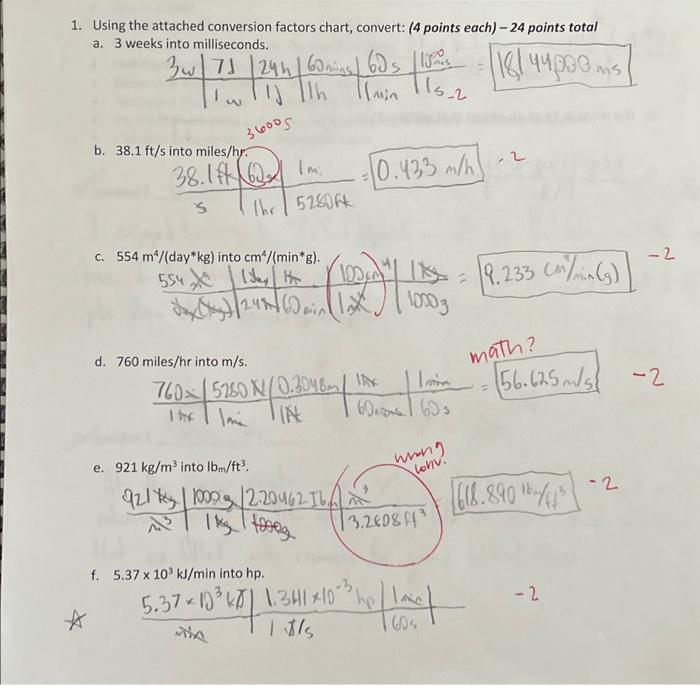 1. Using the attached conversion factors chart, convert: (4 points each) – 24 points total
a. 3 weeks into milliseconds.
3w | 7d | 24h | 60mins | 60s | 1000ms = 18144000 ms
1w | 1d | 1h | 1min | 1s -2
3600s
b. 38.1 ft/s into miles/hr.
38.1ft | 60s | 1mi = 0.433 m/h -2
s | 1hr | 5280ft
c. 554 m⁴/(day*kg) into cm⁴/(min*g).
554 m⁴ | 1day | 1hr | (100cm)⁴ | 1kg = 9.233 cm⁴/min(g) -2
day(kg) | 24hr | 60min | (1m) | 1000g
d. 760 miles/hr into m/s.
math?
760mi | 5280ft | 0.3048m | 1hr | 1min = 56.625m/s -2
1hr | 1mi | 1ft | 60mins | 60s
e. 921 kg/m³ into lbₘ/ft³.
wrong
conv.
921kg | 1000g | 2.20462 lbm | m³ = 618.890 lbm/ft³ -2
m³ | 1kg | 1000g | 3.2808ft³
f. 5.37 x 10³ kJ/min into hp.
5.37×10³ kJ | 1.341×10⁻³ hp | 1min -2
min | 1 J/s | 60s